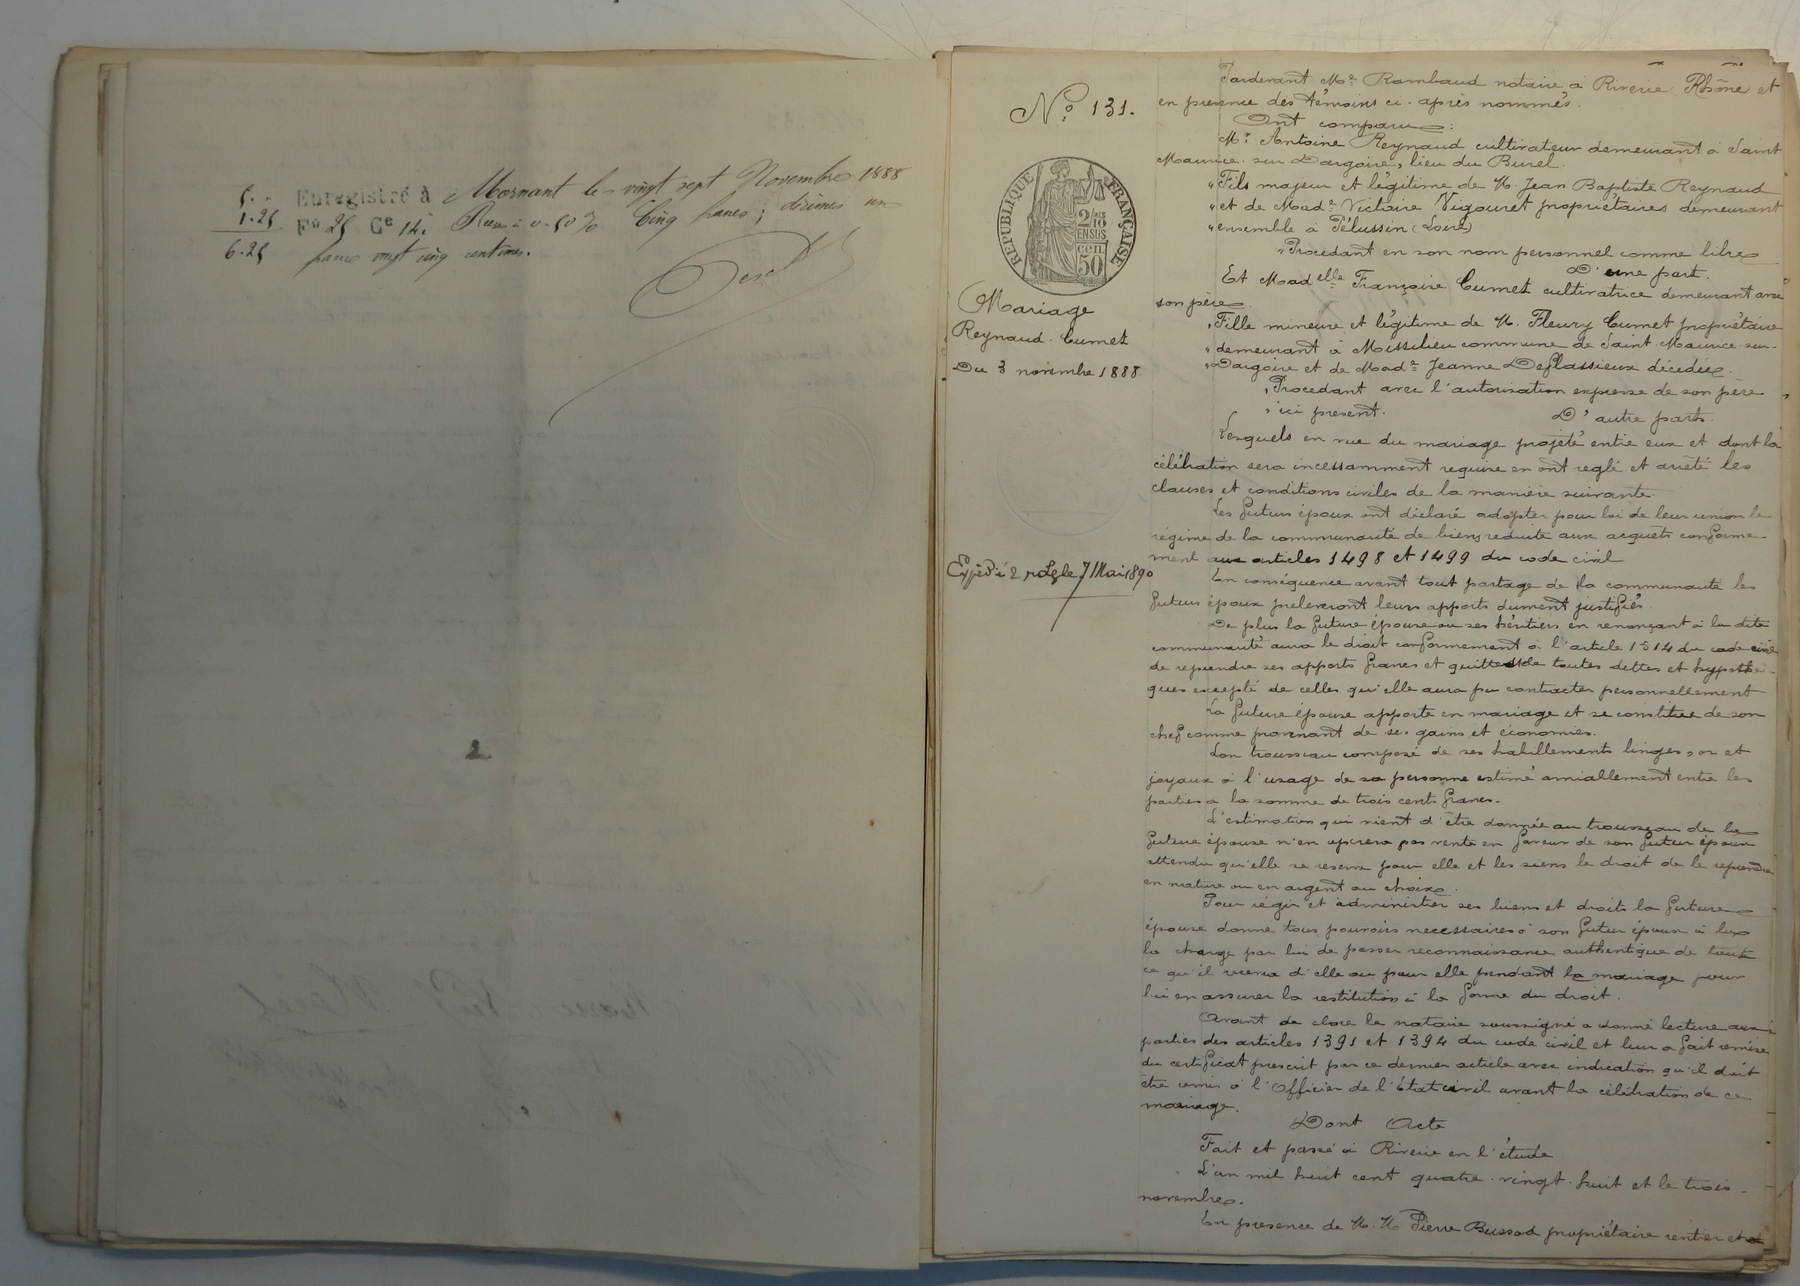 5. "
1.25
6.25
Enregistré à Mornant le vingt sept Novembre 1888
Fo 25 Ce 14. Reçu à 0.50 % Cinq francs ; décimes un
franc vingt cinq centimes.
No. 131.
RÉPUBLIQUE FRANÇAISE
2/10
EN SUS
50 cen
Mariage
Reynaud. Cumet
Du 3 novembre 1888.
Expédié 2 le 7 Mai 1890
Pardevant Me. Rambaud notaire à Riverie (Rhône) et
en présence des témoins ci-après nommés.
Ont comparu :
Mr. Antoine Reynaud cultivateur demeurant à Saint
Maurice-sur-Dargoire, lieu du Burel.
"Fils majeur et légitime de M. Jean Baptiste Reynaud
"et de Made. Victoire Vigouret propriétaires demeurant
"ensemble à Pélussin (Loire)
"Procédant en son nom personnel comme libre
D'une part.
Et Madelle. Françoise Cumet cultivatrice demeurant avec
son père.
"Fille mineure et légitime de M. Fleury Cumet propriétaire
"demeurant à Missilieu commune de Saint-Maurice-sur-
"Dargoire et de Made. Jeanne Deflassieux décédée.
"Procédant avec l'autorisation expresse de son père
"ici présent.
D'autre part.
Lesquels en vue du mariage projeté entre eux et dont la
célébration sera incessamment requise en ont reglé et arrêté les
clauses et conditions civiles de la manière suivante.
Les futurs époux ont déclaré adopter pour loi de leur union le
régime de la communauté de biens réduite aux acquêts conforme-
ment aux articles 1498 et 1499 du code civil
En conséquence avant tout partage de la communauté les
futurs époux preleveront leurs apports dument justifiés.
De plus la future épouse ou ses héritiers en renonçant à la dite
communauté aura le droit conformement à l'article 1514 du code civil
de reprendre ses apports francs et quittes de toutes dettes et hypothe-
ques excepté de celles qu'elle aura pu contracter personnellement
La future épouse apporte en mariage et se constitue de son
chef comme provenant de ses gains et économies.
Son trousseau composé de ses habillements linges, or et
joyaux à l'usage de sa personne estimé amiablement entre les
parties à la somme de trois cents francs.
L'estimation qui vient d'être donnée au trousseau de la
future épouse n'en opérera pas vente en faveur de son futur époux
attendu qu'elle se reserve pour elle et les siens le droit de le reprendre
en nature ou en argent au choix.
Pour régir et administrer ses biens et droits la future
épouse donne tous pouvoirs necessaires à son futur époux à la
la charge par lui de passer reconnaissance authentique de tout
ce qu'il recevra d'elle ou pour elle pendant le mariage pour
lui en assurer la restitution à la forme du droit.
Avant de clore le notaire soussigné a donné lecture aux
parties des articles 1391 et 1394 du code civil et leur a fait remise
du certificat prescrit par ce dernier article avec indication qu'il doit
être remis à l'Officier de l'Etat civil avant la célébration de ce
mariage.
Dont Acte
Fait et passé à Riverie en l'étude
L'an mil huit cent quatre-vingt-huit et le trois
novembre.
En présence de M. M. Pierre Bussod propriétaire rentier et